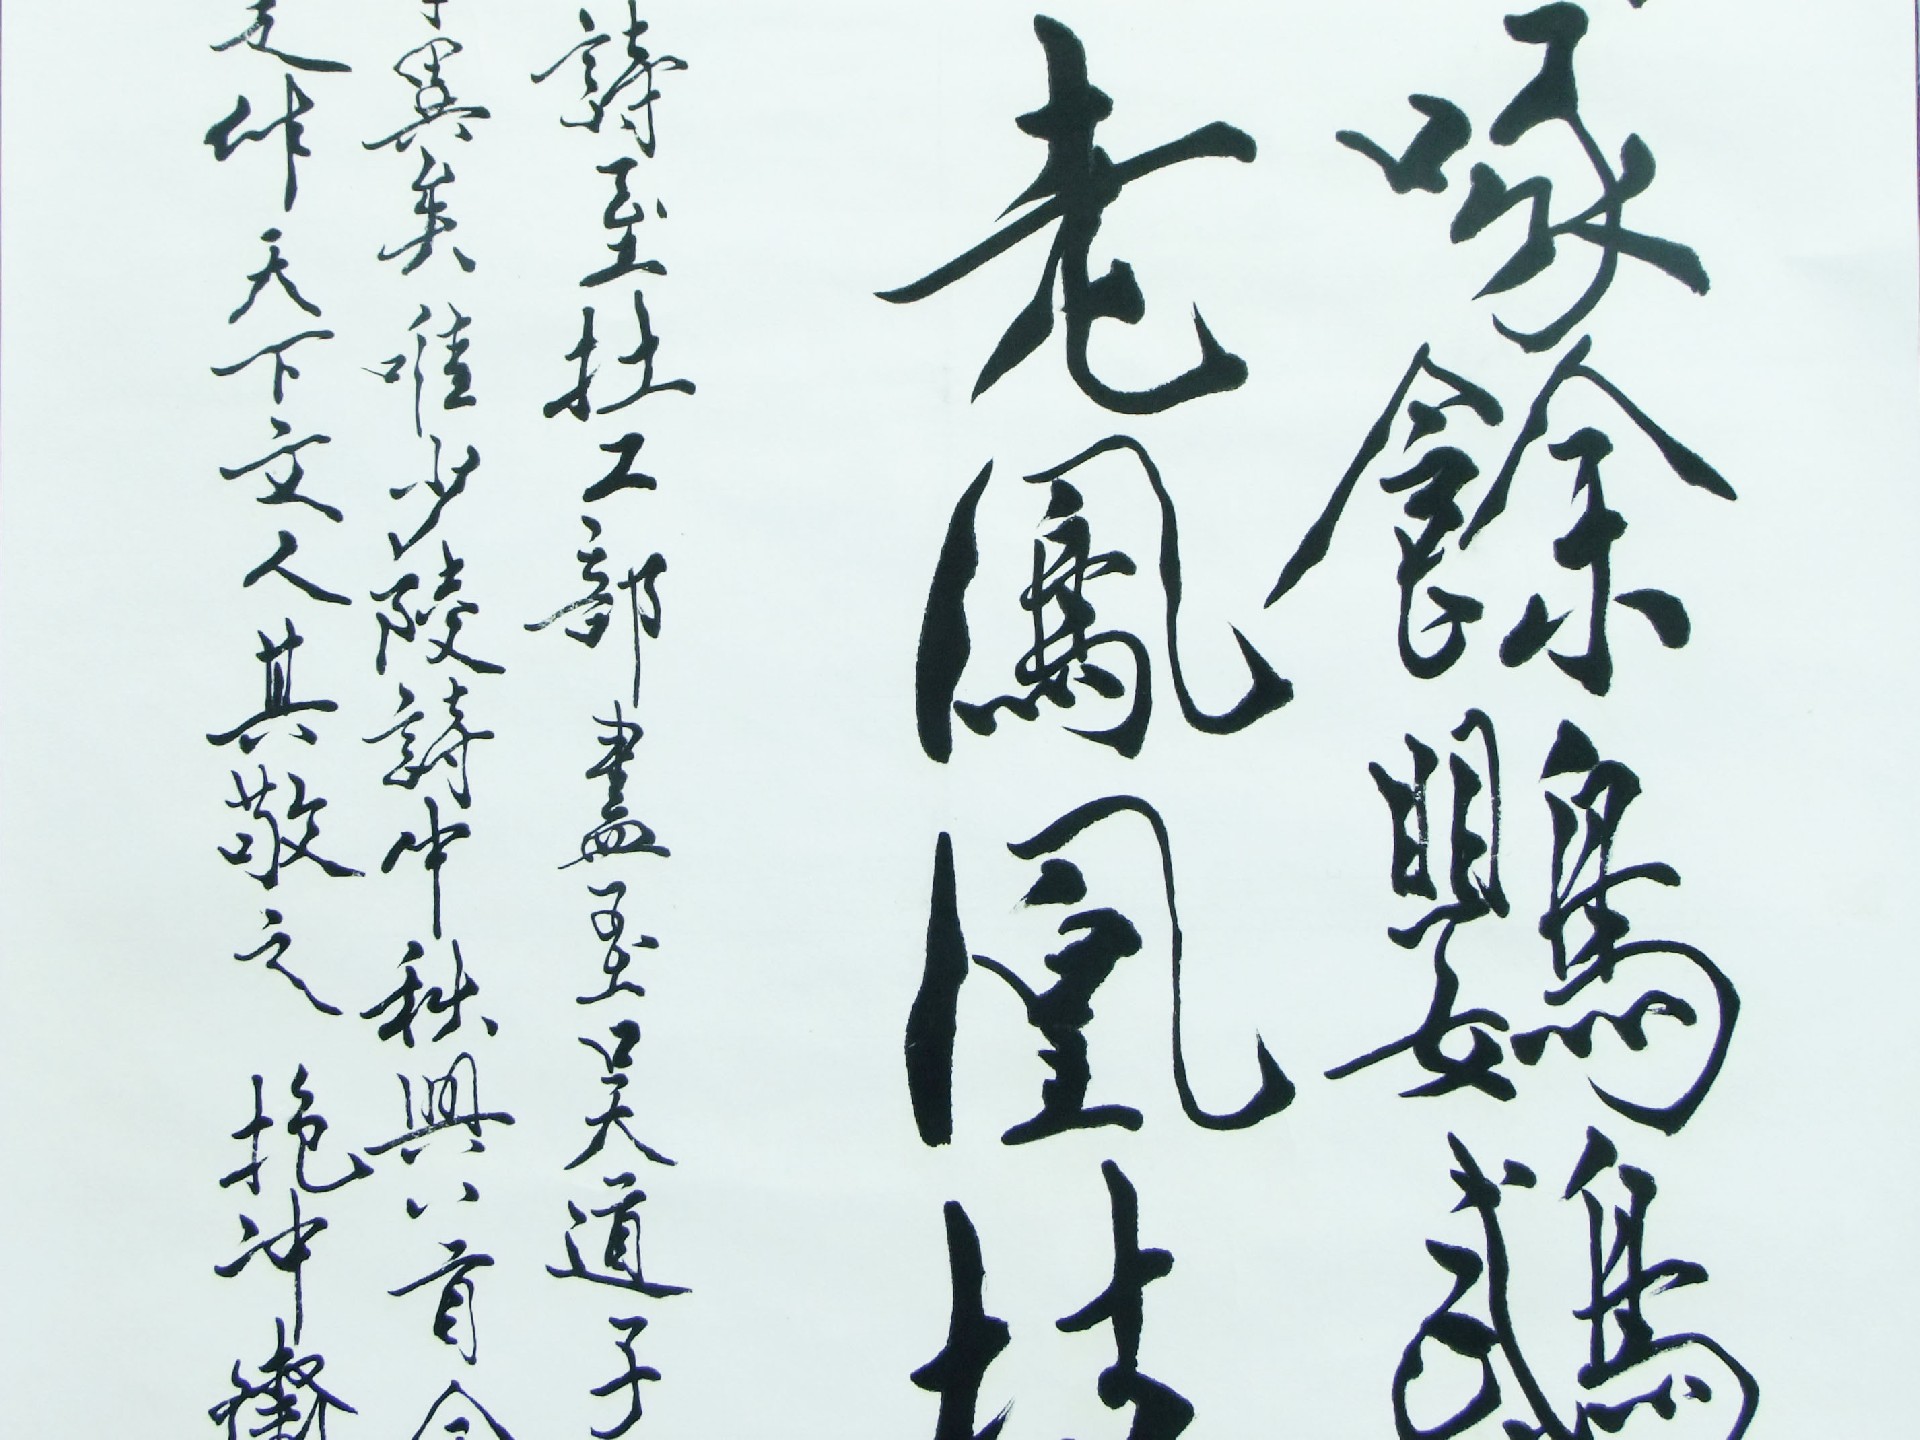 啄餘鸚鵡
老鳳凰枝
詩至杜工部畫至吳道子
異矣唯少陵詩中秋興八首今
是作天下文人其敬之抱沖齋